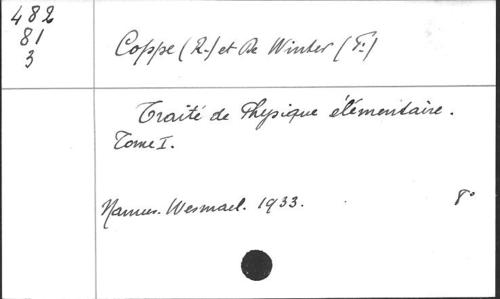 482
81
3
Coppe (R.) et De Winter (F.)
Traité de Physique élémentaire.
Tome I.
Namur. Wesmael. 1933. 8°